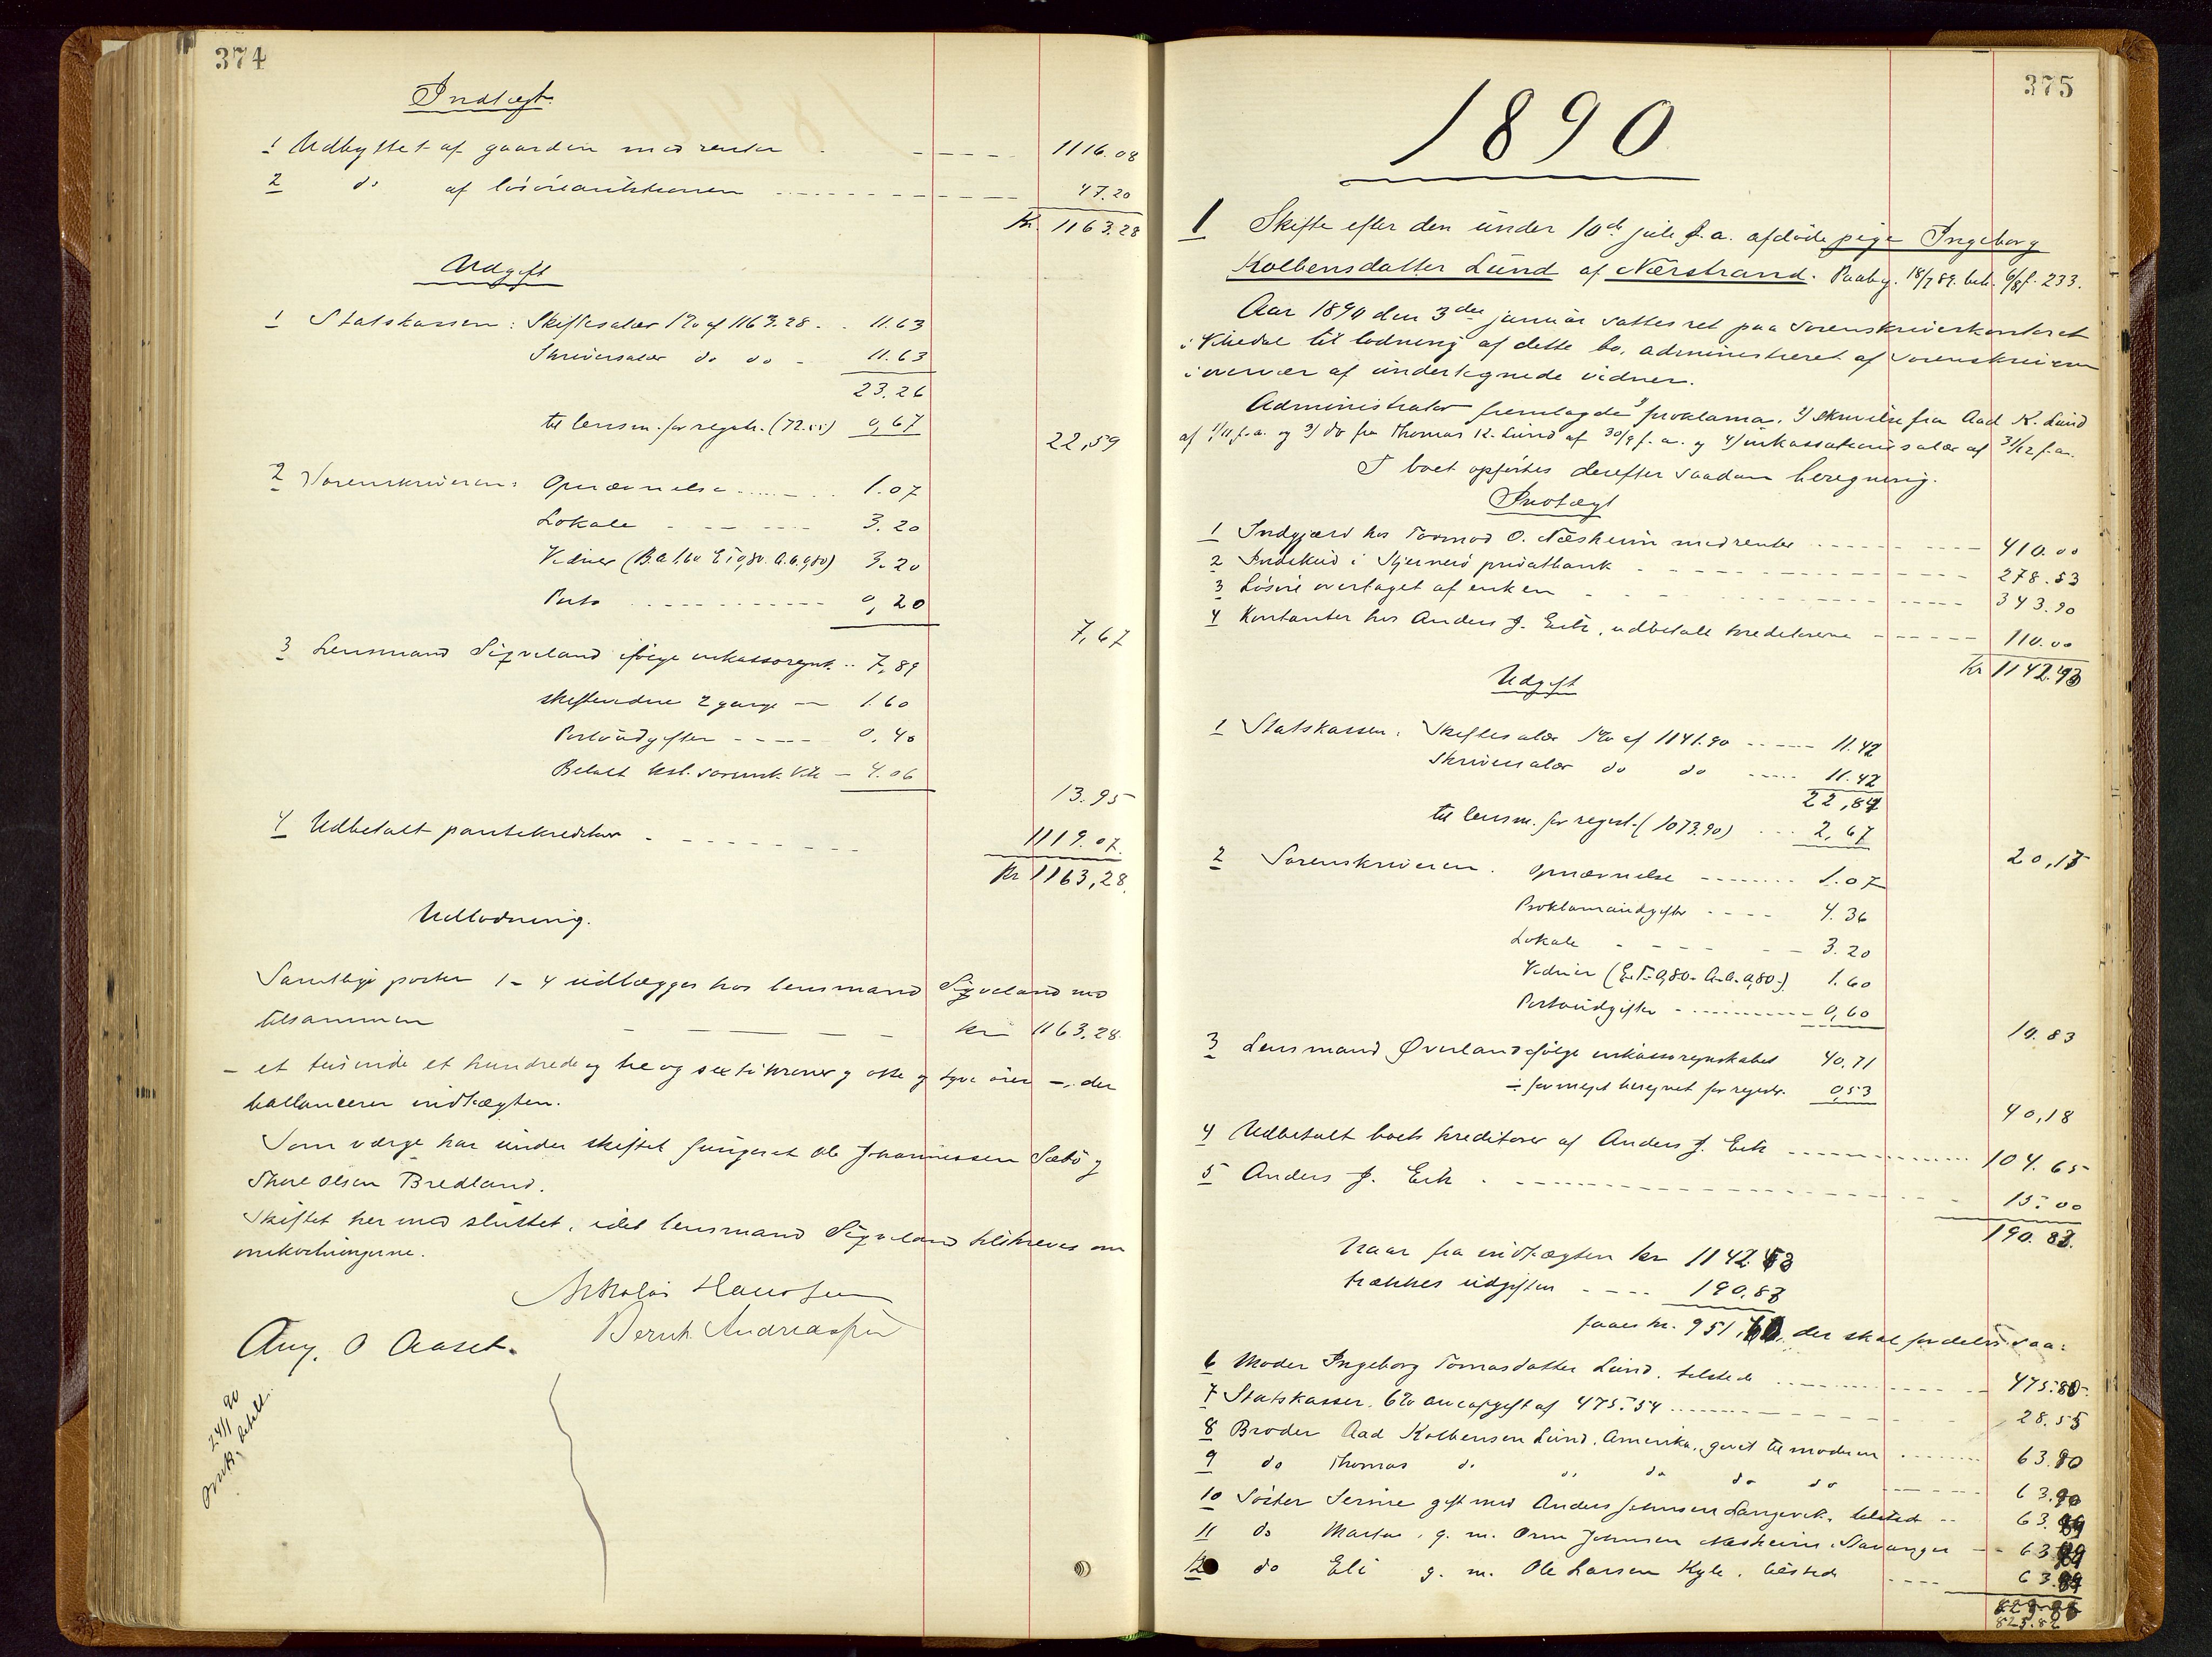 374
Indtægt.
1 Udbyttet af gaarden med renter 1116.08
2 do af løsøreauktionen 47.20
Kr. 1163.28
Udgift
1 Statskassen: Skiftesalær 1% af 1163.28 11.63
Skriversalær do do 11.63
23.26
til lensm. for registr. (72.55) 0,67
22,59
2 Sorenskriveren: Opnævnelse 1.07
Lokale 3.20
Vidner 3.20
Porto 0,20
7,67
3 Lensmand Sigveland ifølge inkassoregnsk. 7,89
skiftevidne 2 gange 1.60
Portoudgifter 0.40
Betalt kst. sorensk. 4.06
13.95
4 Udbetalt pantekreditor 1119.07.
Kr 1163,28.
Udlodning.
Samtlige poster 1-4 udlægges hos lensmand Sigveland med
tilsammen kr 1163.28.
– et tusinde et hundrede og tre og sexti kroner og otte og tyve ører –, der
ballancerer indtægten.
Som værge har under skiftet fungeret Ole Johannessen Sæbø og
Thore Olsen Bredland.
Skiftet hermed sluttet, idet lensmand Sigveland tilskreves om
omkostningerne.
Nikolai Hansen
Aug. O Aaset. Bernh. Andreassen
24/1 90
betalt.
375
1890
1 Skifte efter den under 10de juli f.a. afdøde pige Ingeborg
Kolbensdatter Lund af Nærstrand. Paabeg. 18/7 89. beh. 6/8 f. 233.
Aar 1890 den 3die januar sattes ret paa sorenskriverkontoret
i Vikedal til lodning af dette bo, administreret af sorenskriveren
i overvær af undertegnede vidner.
Administrator fremlagde 1) proklama, 2) skrivelse fra Aad K. Lund
af 1/11 f.a. og 3) do fra Thomas K. Lund af 30/9 f.a. og 4) inkassationssalær af 31/12 f.a.
I boet opførtes derefter saadan beregning.
Indtægt
1 Indgjæld hos Tormod O. Næsheim med renter 410.00
2 Indskud i Stjernerø privatbank 278.53
3 Løsøre overtaget af enken 343.90
4 Kontanter hos Anders J. Eik, udbetalt kreditorerne 110.00
Kr 1142.43
Udgift
1 Statskassen: Skiftesalær 1% af 1141.90 11.42
Skriversalær do do 11.42
22,84
til lensm. for regist. (1073.90) 2,67
20,17
2 Sorenskriveren. Opnævnelse 1.07
Proklamaudgifter 4.36
Lokale 3.20
Vidner (E.T. 0,80. A.A. 0,80.) 1.60
Portoudgifter 0,60
10.83
3 Lensmand Øverland ifølge inkassoregnskabet 40.71
÷ for meget beregnet for registr. 0,53
40,18
4 Udbetalt boets kreditorer af Anders J. Eik 104.65
5 Anders J. Eik 15.00
190.83.
Naar fra indtægten kr 1142.43
trækkes udgiften 190.83
faaes kr. 951,60, der skal fordeles saa:
6 Moder Ingeborg Tomasdatter Lund, tilstede 475.80
7 Statskassen, 6% arveafgift af 475.54 28.55
8 Broder Aad Kolbensen Lund, Amerika, givet til moderen 63.90
9 do Thomas do do do do do 63.90
10 Søster Serine gift med Anders Johnsen Langevik, tilsted 63.89
11 do Martha, g. m. Orm Johnsen Næsheim, Stavanger 63.89
12 do Eli g. m. Ole Larsen Kyle, tilsted 63.89
823.82